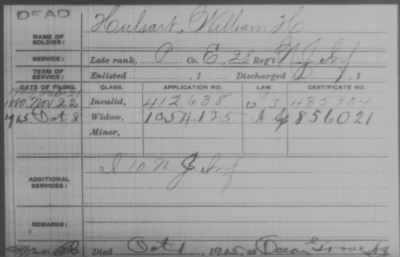 DEAD
NAME OF SOLDIER: Hulsart, William H
SERVICE: Late rank, P Co. E, 28 Reg't N J Inf
TERM OF SERVICE: Enlisted , 1 Discharged , 1
DATE OF FILING. CLASS. APPLICATION NO. LAW. CERTIFICATE NO.
1880 Nov 22 Invalid, 412638
1915 Oct 8 Widow, 1054125 856021
Minor,
ADDITIONAL SERVICES: I 10 N J Inf
REMARKS:
Died Oct 1, 1915, at Ocean Grove NJ